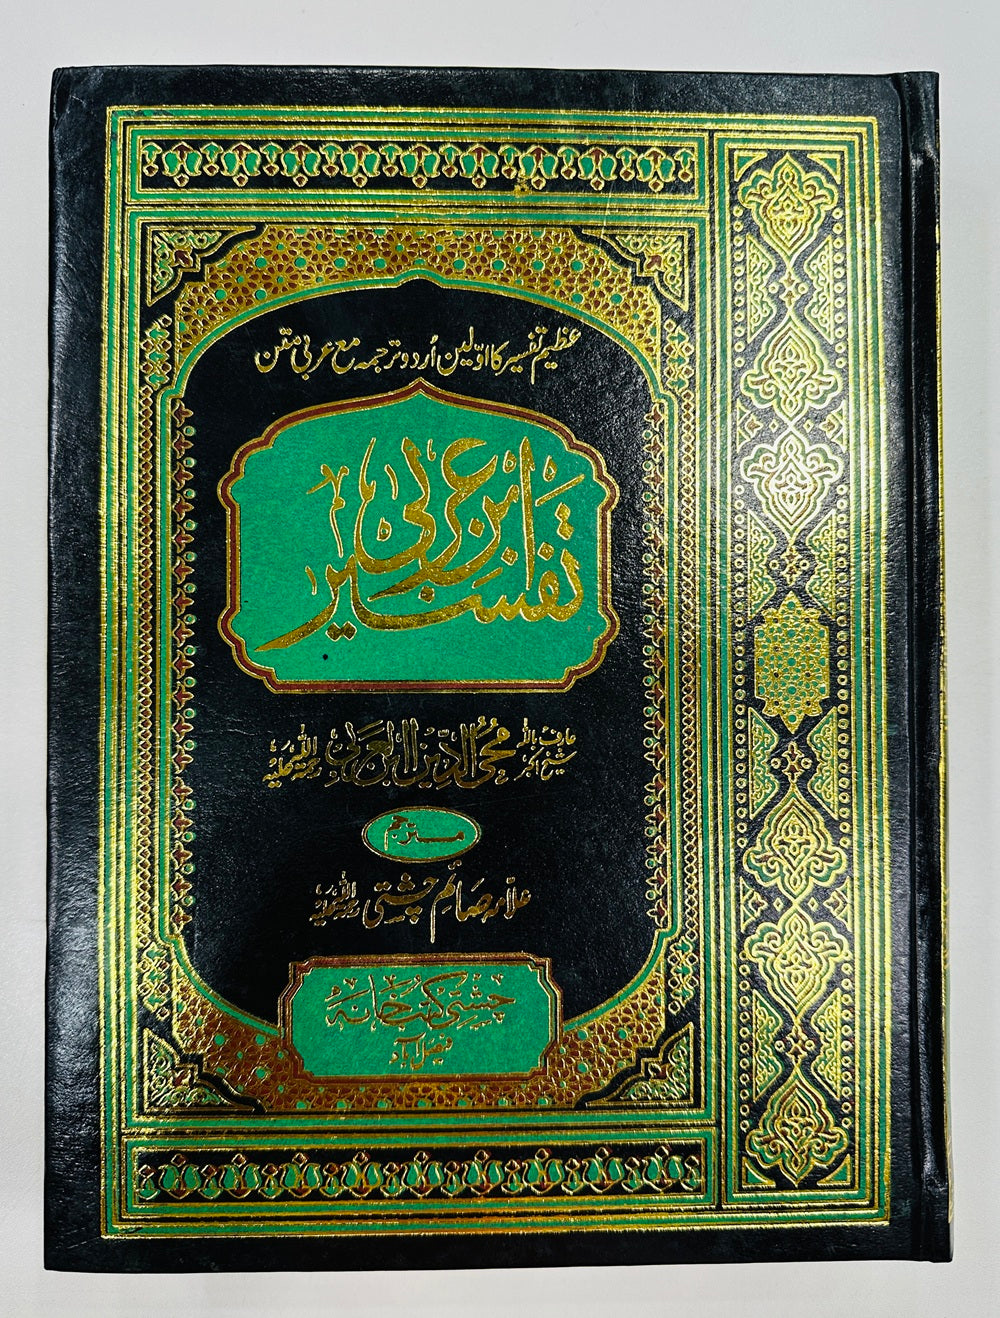 عظیم تفسیر کا اوّلین اُردو ترجمہ مع عربی متن
تفسیر ابن عربی
عارف باللہ شیخ اکبر محی الدین ابن العربی رحمۃ اللہ علیہ
مترجم
علامہ صائم چشتی رحمۃ اللہ علیہ
چشتی کتب خانہ
فیصل آباد